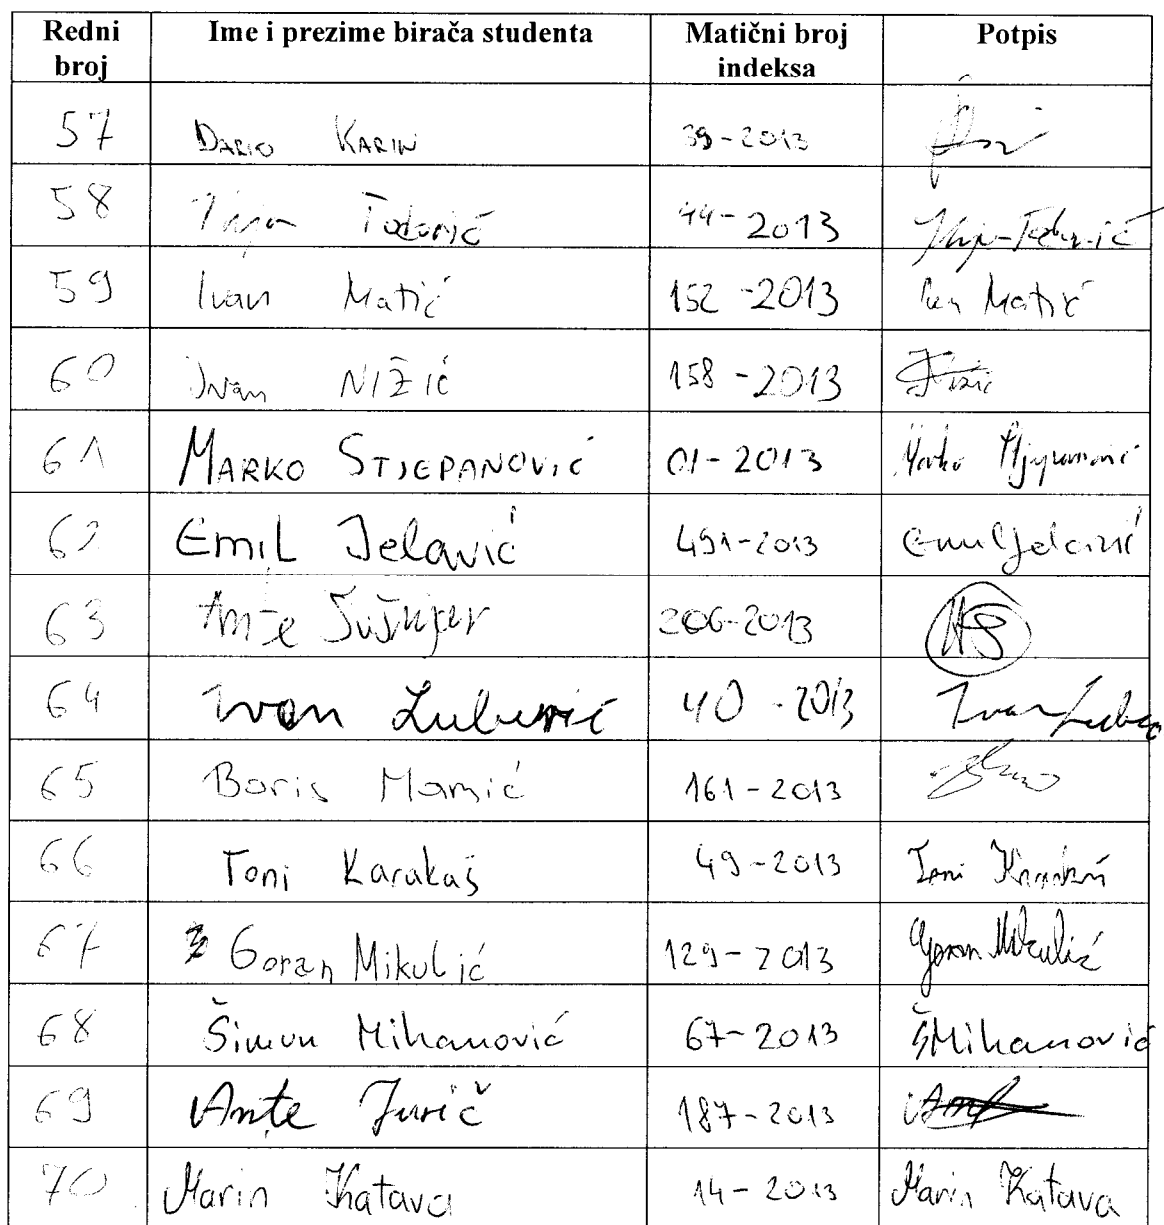 Redni broj Ime i prezime birača studenta Matični broj indeksa Potpis
57 DARIO KARIN 39-2013
58 Todorić 44-2013 Todorić
59 Ivan Matić 152-2013 Ivan Matić
60 Ivan NIŽIĆ 158-2013
61 MARKO STJEPANOVIĆ 01-2013 Marko Stjepanović
62 Emil Jelavić 491-2013 Emil Jelavić
63 Ante Sušnjar 206-2013
64 Ivan 40-2013 Ivan
65 Boris Mamić 161-2013
66 Toni Karakaš 49-2013 Toni Karakaš
67 Goran Mikulić 129-2013 Goran Mikulić
68 Šimun Mihanović 67-2013 ŠMihanović
69 Ante Jurič 187-2013
70 Marin Katava 14-2013 Marin Katava